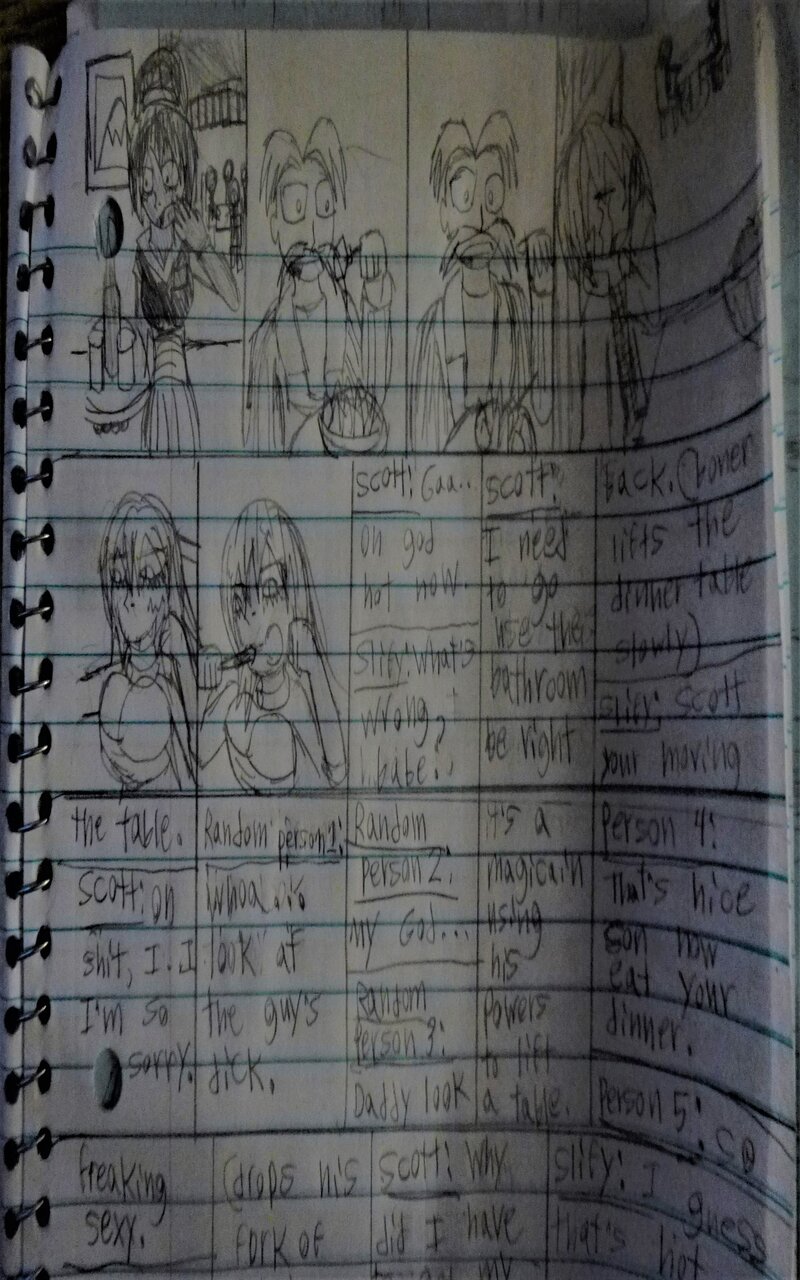 Scott: Gaa..
oh god
not now.
Slify: What's
wrong,
babe?
Scott:
I need
to go
use the
bathroom
be right
back. (boner
lifts the
dinner table
slowly)
Slify: Scott
your moving
the table.
Scott: oh
shit, I.. I
I'm so
sorry.
Random person 1:
Whoa...
look at
the guy's
dick.
Random
person 2:
my God...
Random
Person 3:
Daddy look
it's a
magicain
using
his
powers
to lift
a table.
Person 4:
That's nice
son now
eat your
dinner.
Person 5: so
freaking
sexy.
(drops his
fork of
Scott: Why
did I have
my
Slify: I
guess
that's